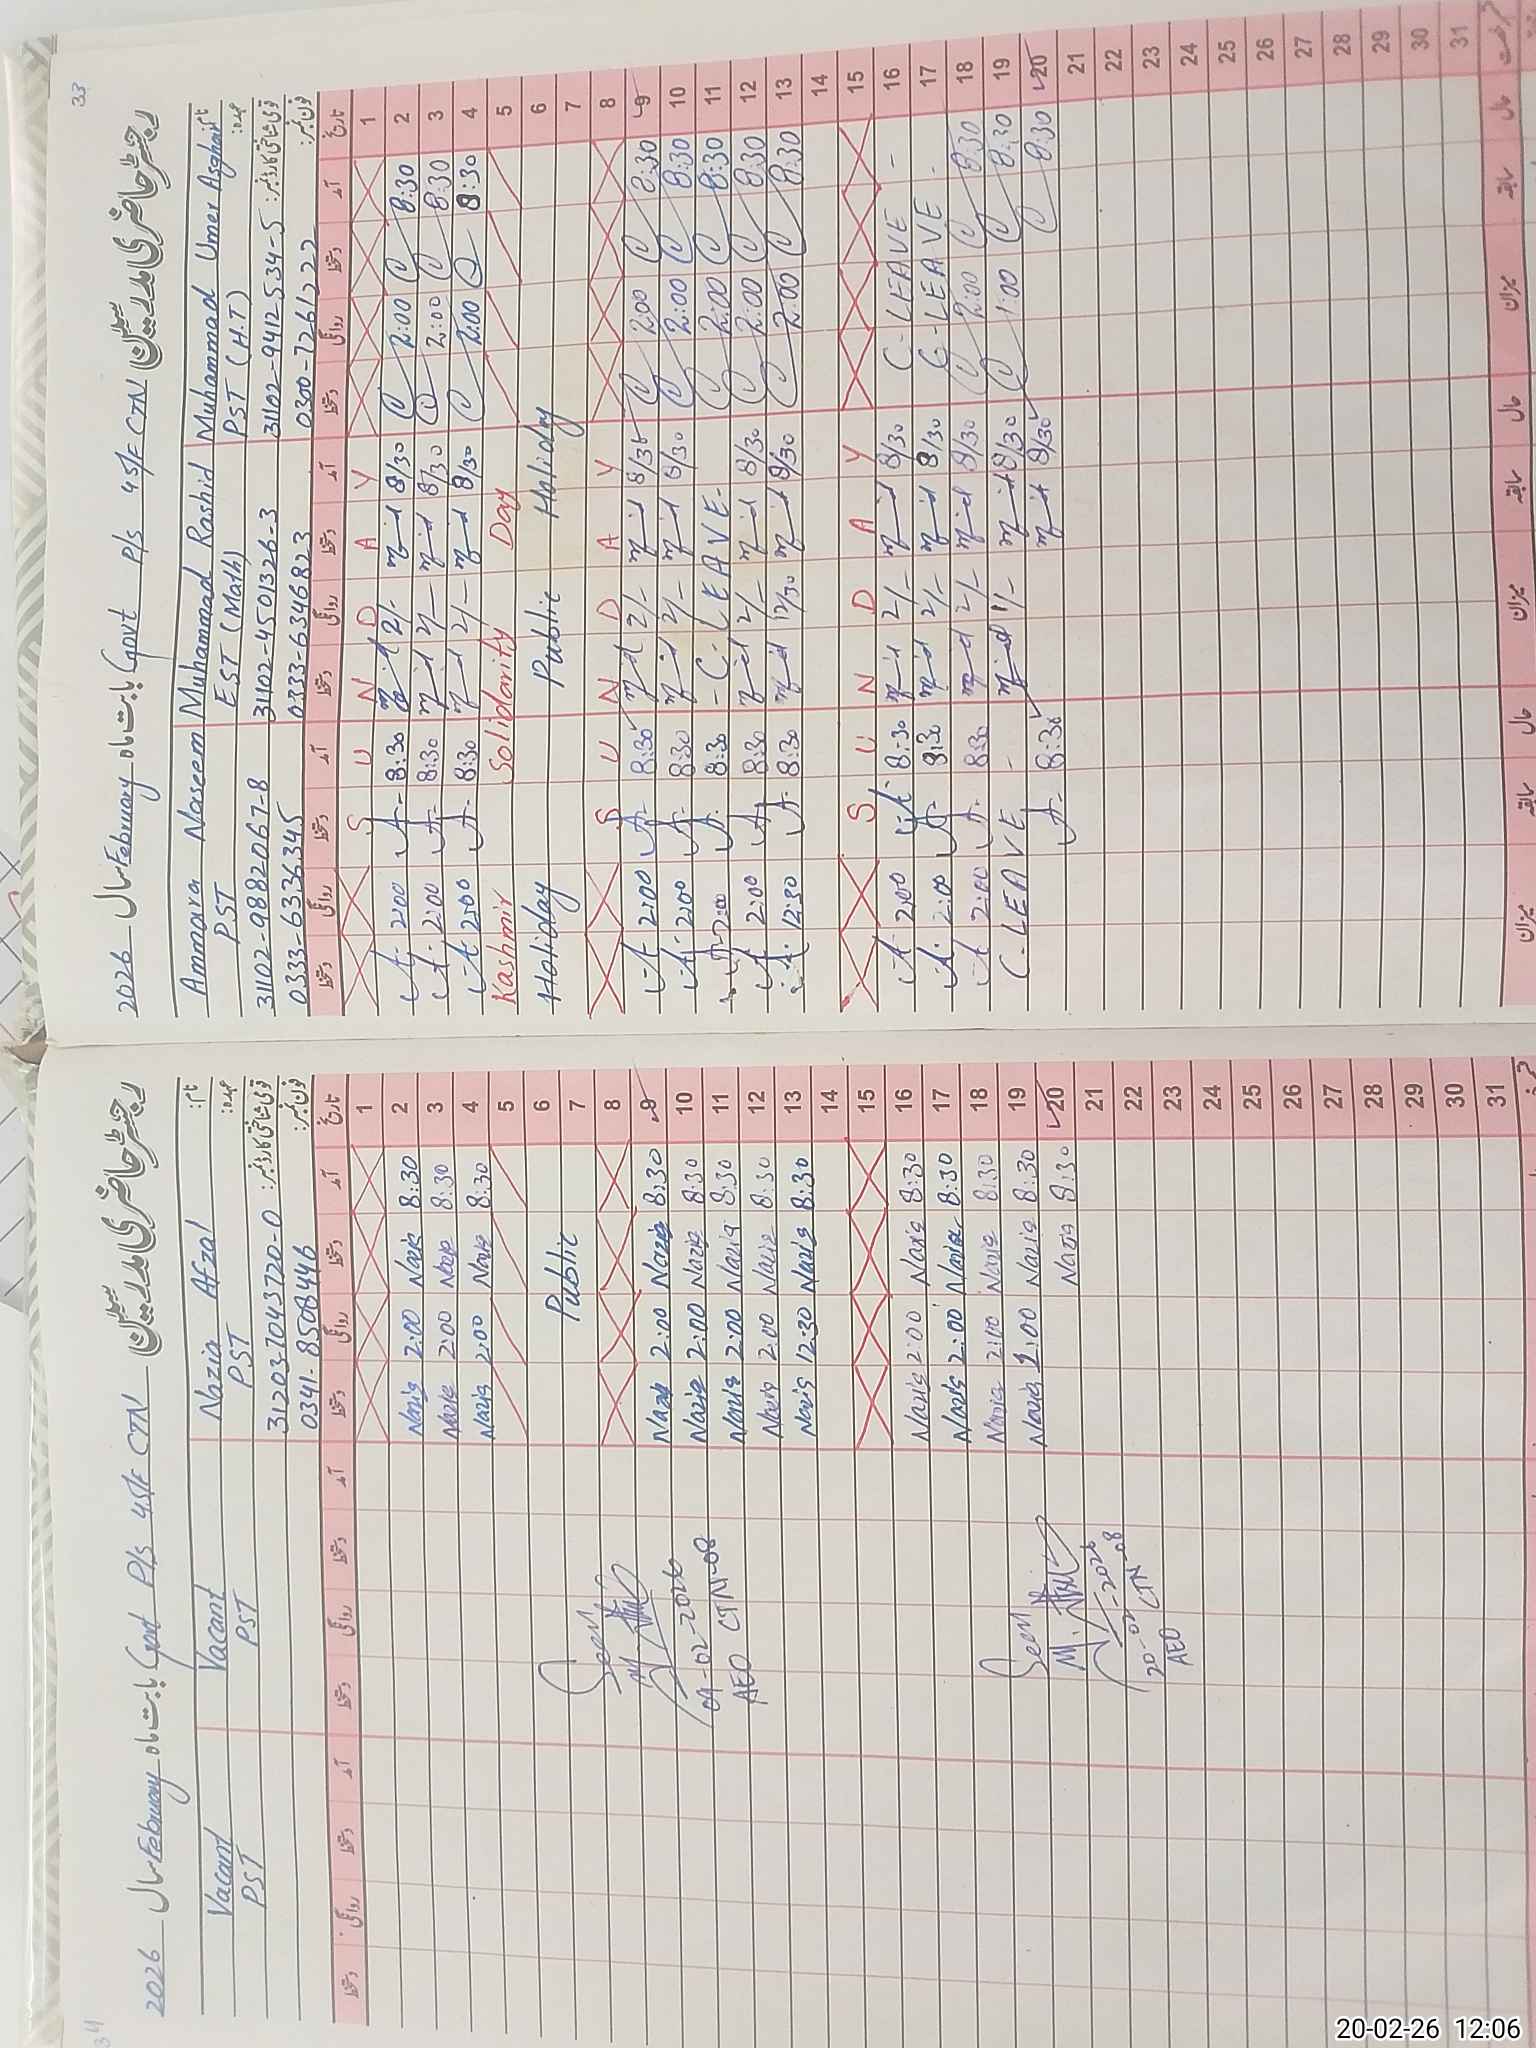 33
رجسٹر حاضری مدرسین سکول Govt P/S 45/F CTN بابت ماہ February سال 2026
نام: Muhammad Umer Asghar Muhammad Rashid Ammara Naseem
عہدہ: PST (H.T) EST (Math) PST
قومی شناختی کارڈ نمبر: 31102-9412534-5 31102-4501326-3 31102-9882067-8
فون نمبر: 0333-6346823 0333-6336345
تاریخ آمد دستخط روانگی دستخط آمد دستخط روانگی دستخط آمد دستخط روانگی دستخط
1 S U N D A Y
2 8:30 2:00 8/30 2/- 8:30 2:00
3 8:30 2:00 8/30 2/- 8:30 2:00
4 8:30 2:00 8/30 2/- 8:30 2:00
5 Kashmir Solidarity Day
6 Public Holiday
7 Holiday
8 S U N D A Y
9 8:30 2:00 8/30 2/- 8:30 2:00
10 8:30 2:00 8/30 2/- 8:30 2:00
11 8:30 2:00 -C-LEAVE- 8:30 2:00
12 8:30 2:00 8/30 2/- 8:30 2:00
13 8:30 2:00 8/30 12/30 8:30 12:30
14
15 S U N D A Y
16 C-LEAVE - 8/30 2/- 8:30 2:00
17 C-LEAVE - 8/30 2/- 8:30 2:00
18 8:30 2:00 8/30 2/- 8:30 2:00
19 8:30 1:00 8/30 1/- C-LEAVE -
20 8:30 8/30 8:30
21
22
23
24
25
26
27
28
29
30
31
حال سابقہ میزان حال سابقہ میزان حال سابقہ میزان
34
رجسٹر حاضری مدرسین سکول Govt P/S 45/F CTN بابت ماہ February سال 2026
نام: Nazia Afzal Vacant Vacant
عہدہ: PST PST PST
قومی شناختی کارڈ نمبر: 31203-7043720-0
فون نمبر: 0341-8508446
تاریخ آمد دستخط روانگی دستخط آمد دستخط روانگی دستخط آمد دستخط روانگی دستخط
1
2 8:30 Nazia 2:00 Nazia
3 8:30 Nazia 2:00 Nazia
4 8:30 Nazia 2:00 Nazia
5
6 Public
7
8
9 8:30 Nazia 2:00 Nazia
10 8:30 Nazia 2:00 Nazia
11 8:30 Nazia 2:00 Nazia
12 8:30 Nazia 2:00 Nazia
13 8:30 Nazia 12:30 Nazia
14
15
16 8:30 Nazia 2:00 Nazia
17 8:30 Nazia 2:00 Nazia
18 8:30 Nazia 2:00 Nazia
19 8:30 Nazia 1:00 Nazia
20 8:30 Nazia
21
22
23
24
25
26
27
28
29
30
31
Seen
09-02-2026
AEO CTN-08
Seen
20-02-2026
AEO CTN-08
20-02-26 12:06